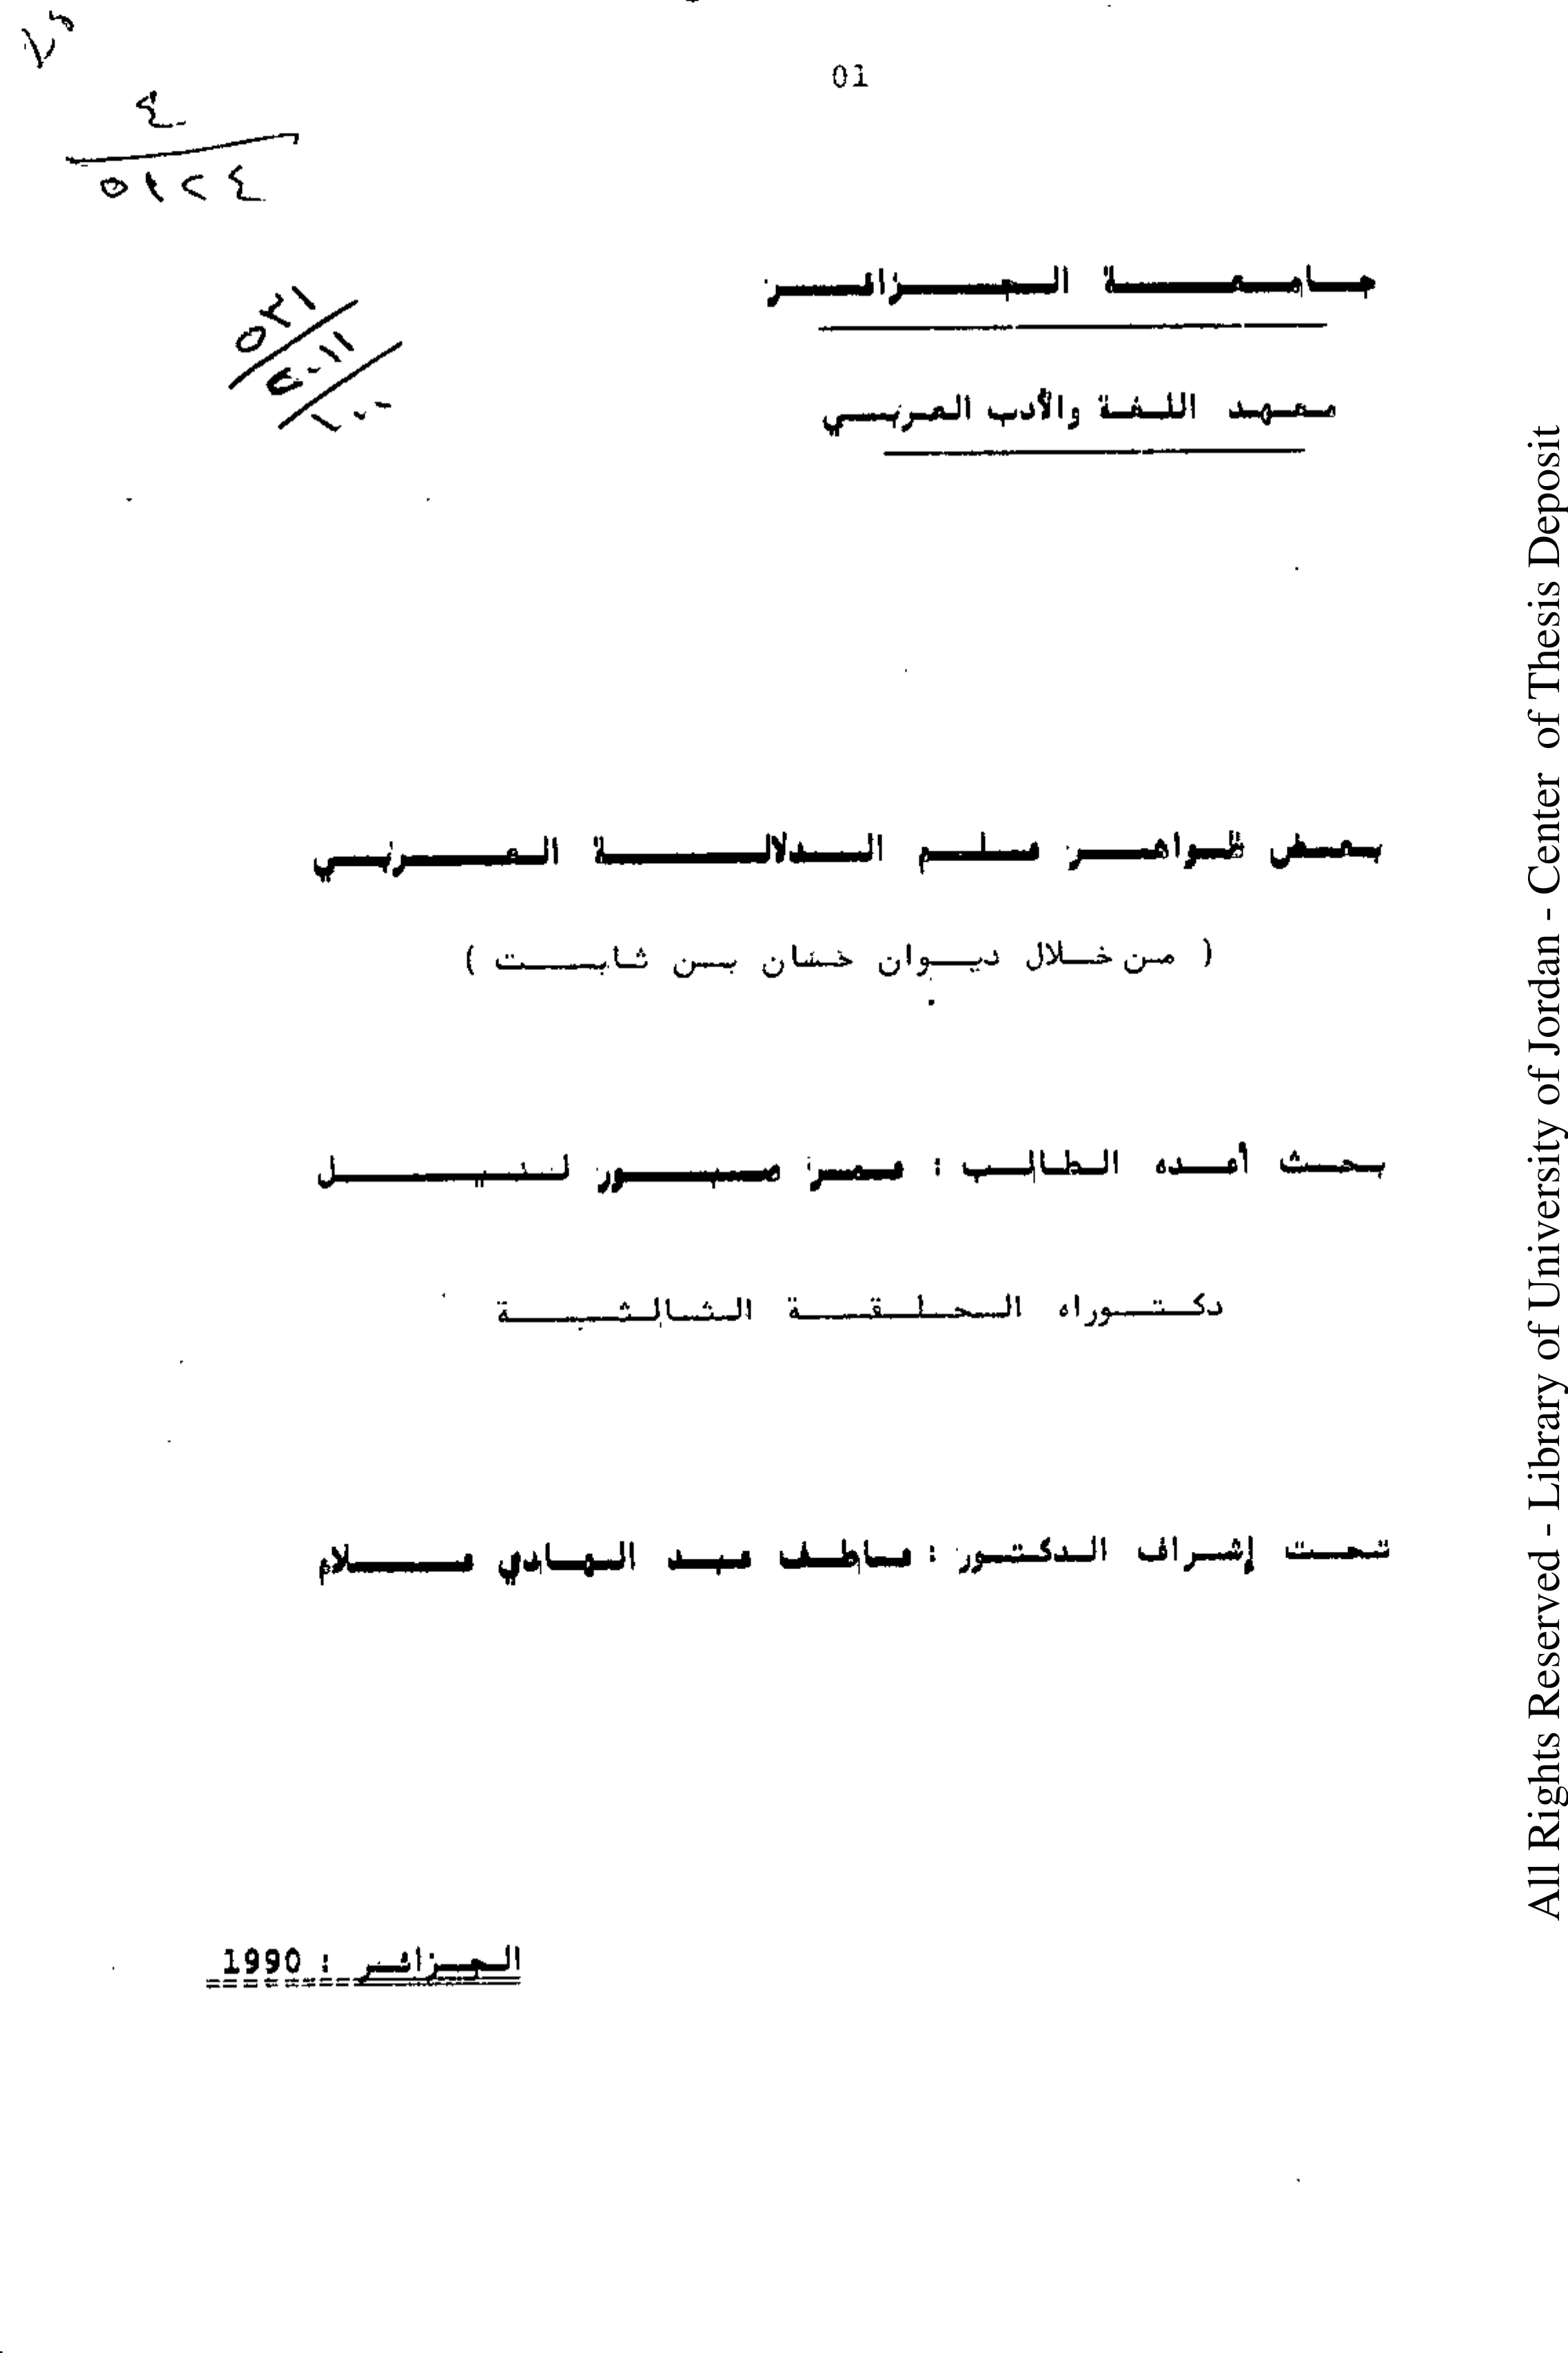 01
٤
٥١٢٤
جامعة الجزائر
معهد اللغة والأدب العربي
بعض ظواهر علم الدلالة العربي
( من خلال ديوان حسان بن ثابت )
بحث أعده الطالب : عمر صبور لنيل
دكتوراه الحلقة الثالثة
تحت إشراف الدكتور : عاطف عبد الهادي علام
الجزائر : 1990
All Rights Reserved - Library of University of Jordan - Center of Thesis Deposit